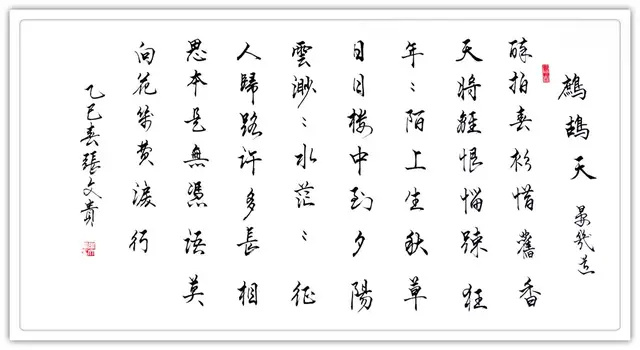 鷓鴣天 晏幾道
醉拍春衫惜舊香
天將離恨惱疎狂
年〻陌上生秋草
日日楼中到夕陽
雲渺〻水茫〻征
人歸路許多長相
思本是無憑語莫
向花箋費淚行
乙巳春張文貴